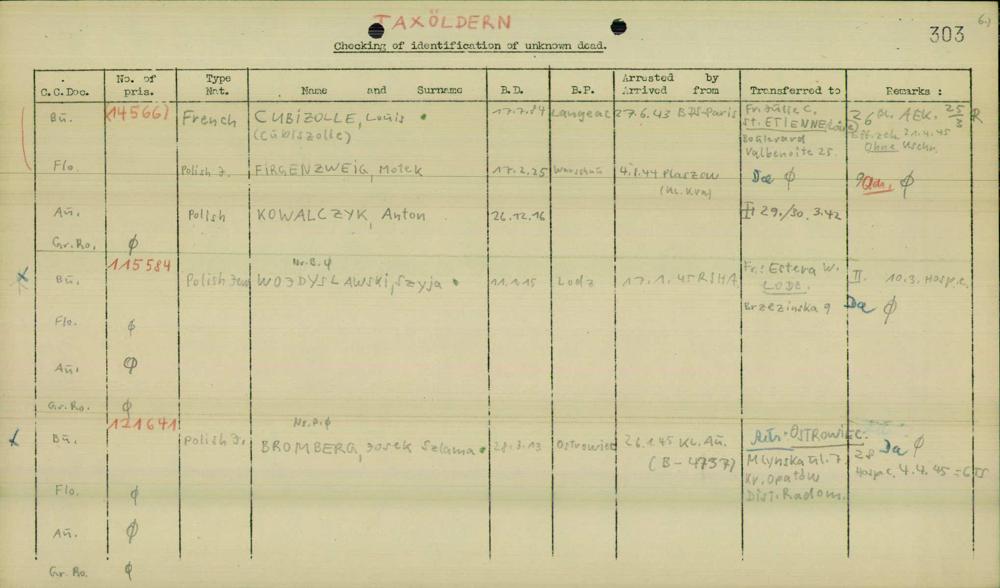 TAXÖLDERN
6.)
303
Checking of identification of unknown dead.
C.C.Doc. No. of pris. Type Nat. Name and Surname B.D. B.P. Arrested by Arrived from Transferred to Remarks :
Bu. 145667 French CUBIZOLLE, Louis 17.7.84 Langeac 27.6.43 BdS-Paris
(Cubiszolle)
St. ETIENNE
Boulevard
Valbenoite 25.
26 AEK. 25/3 R
21.4.45
Ohne
Flo. Polish J. FIRGENZWEIG, Motek 17.2.25 Warschau 4.8.44 Plaszow Da ϕ
ϕ
Au. Polish KOWALCZYK, Anton 26.12.16 29./30.3.42
Gr.Ro. ϕ
115584 Nr.B.ϕ
x Bu. Polish Jew WOJDYSLAWSKI, Szyja 11.1.15 Lodz 17.1.45 RSHA
Fr.: Estera W.
LODZ.
Brzezinska 9
II. 10.3. Hosp.c.
Da ϕ
Flo. ϕ
Au. ϕ
Gr.Ro. ϕ
121641
x Bu. Polish J. BROMBERG, Josek Szlama 28.3.13 Ostrowiec 26.1.45 KL. Au.
(B-4737)
OSTROWIEC.
Mlynska ul. 7.
Kr. Opatow
Dist. Radom.
28 Da ϕ
4.4.45
Flo. ϕ
Au. ϕ
Gr. Ro. ϕ